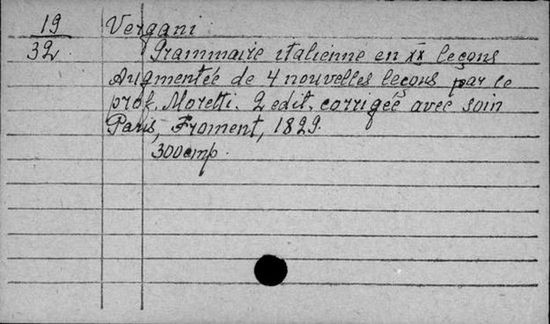 19 Vergani
32 Grammaire italienne en XX leçons
Augmentée de 4 nouvelles leçons par le
prof. Moretti. 2 edit. corrigée avec soin
Paris, Froment, 1829.
300 cmp.